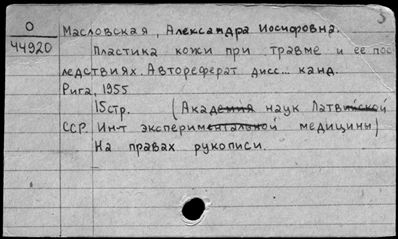 5
О
44920
Масловская, Александра Иосифовна.
Пластика кожи при травме и ее пос
ледствиях. Автореферат дисс... канд.
Рига, 1955
15стр. (Академия наук Латвийской
ССР. Ин-т экспериментальной медицины)
На правах рукописи.